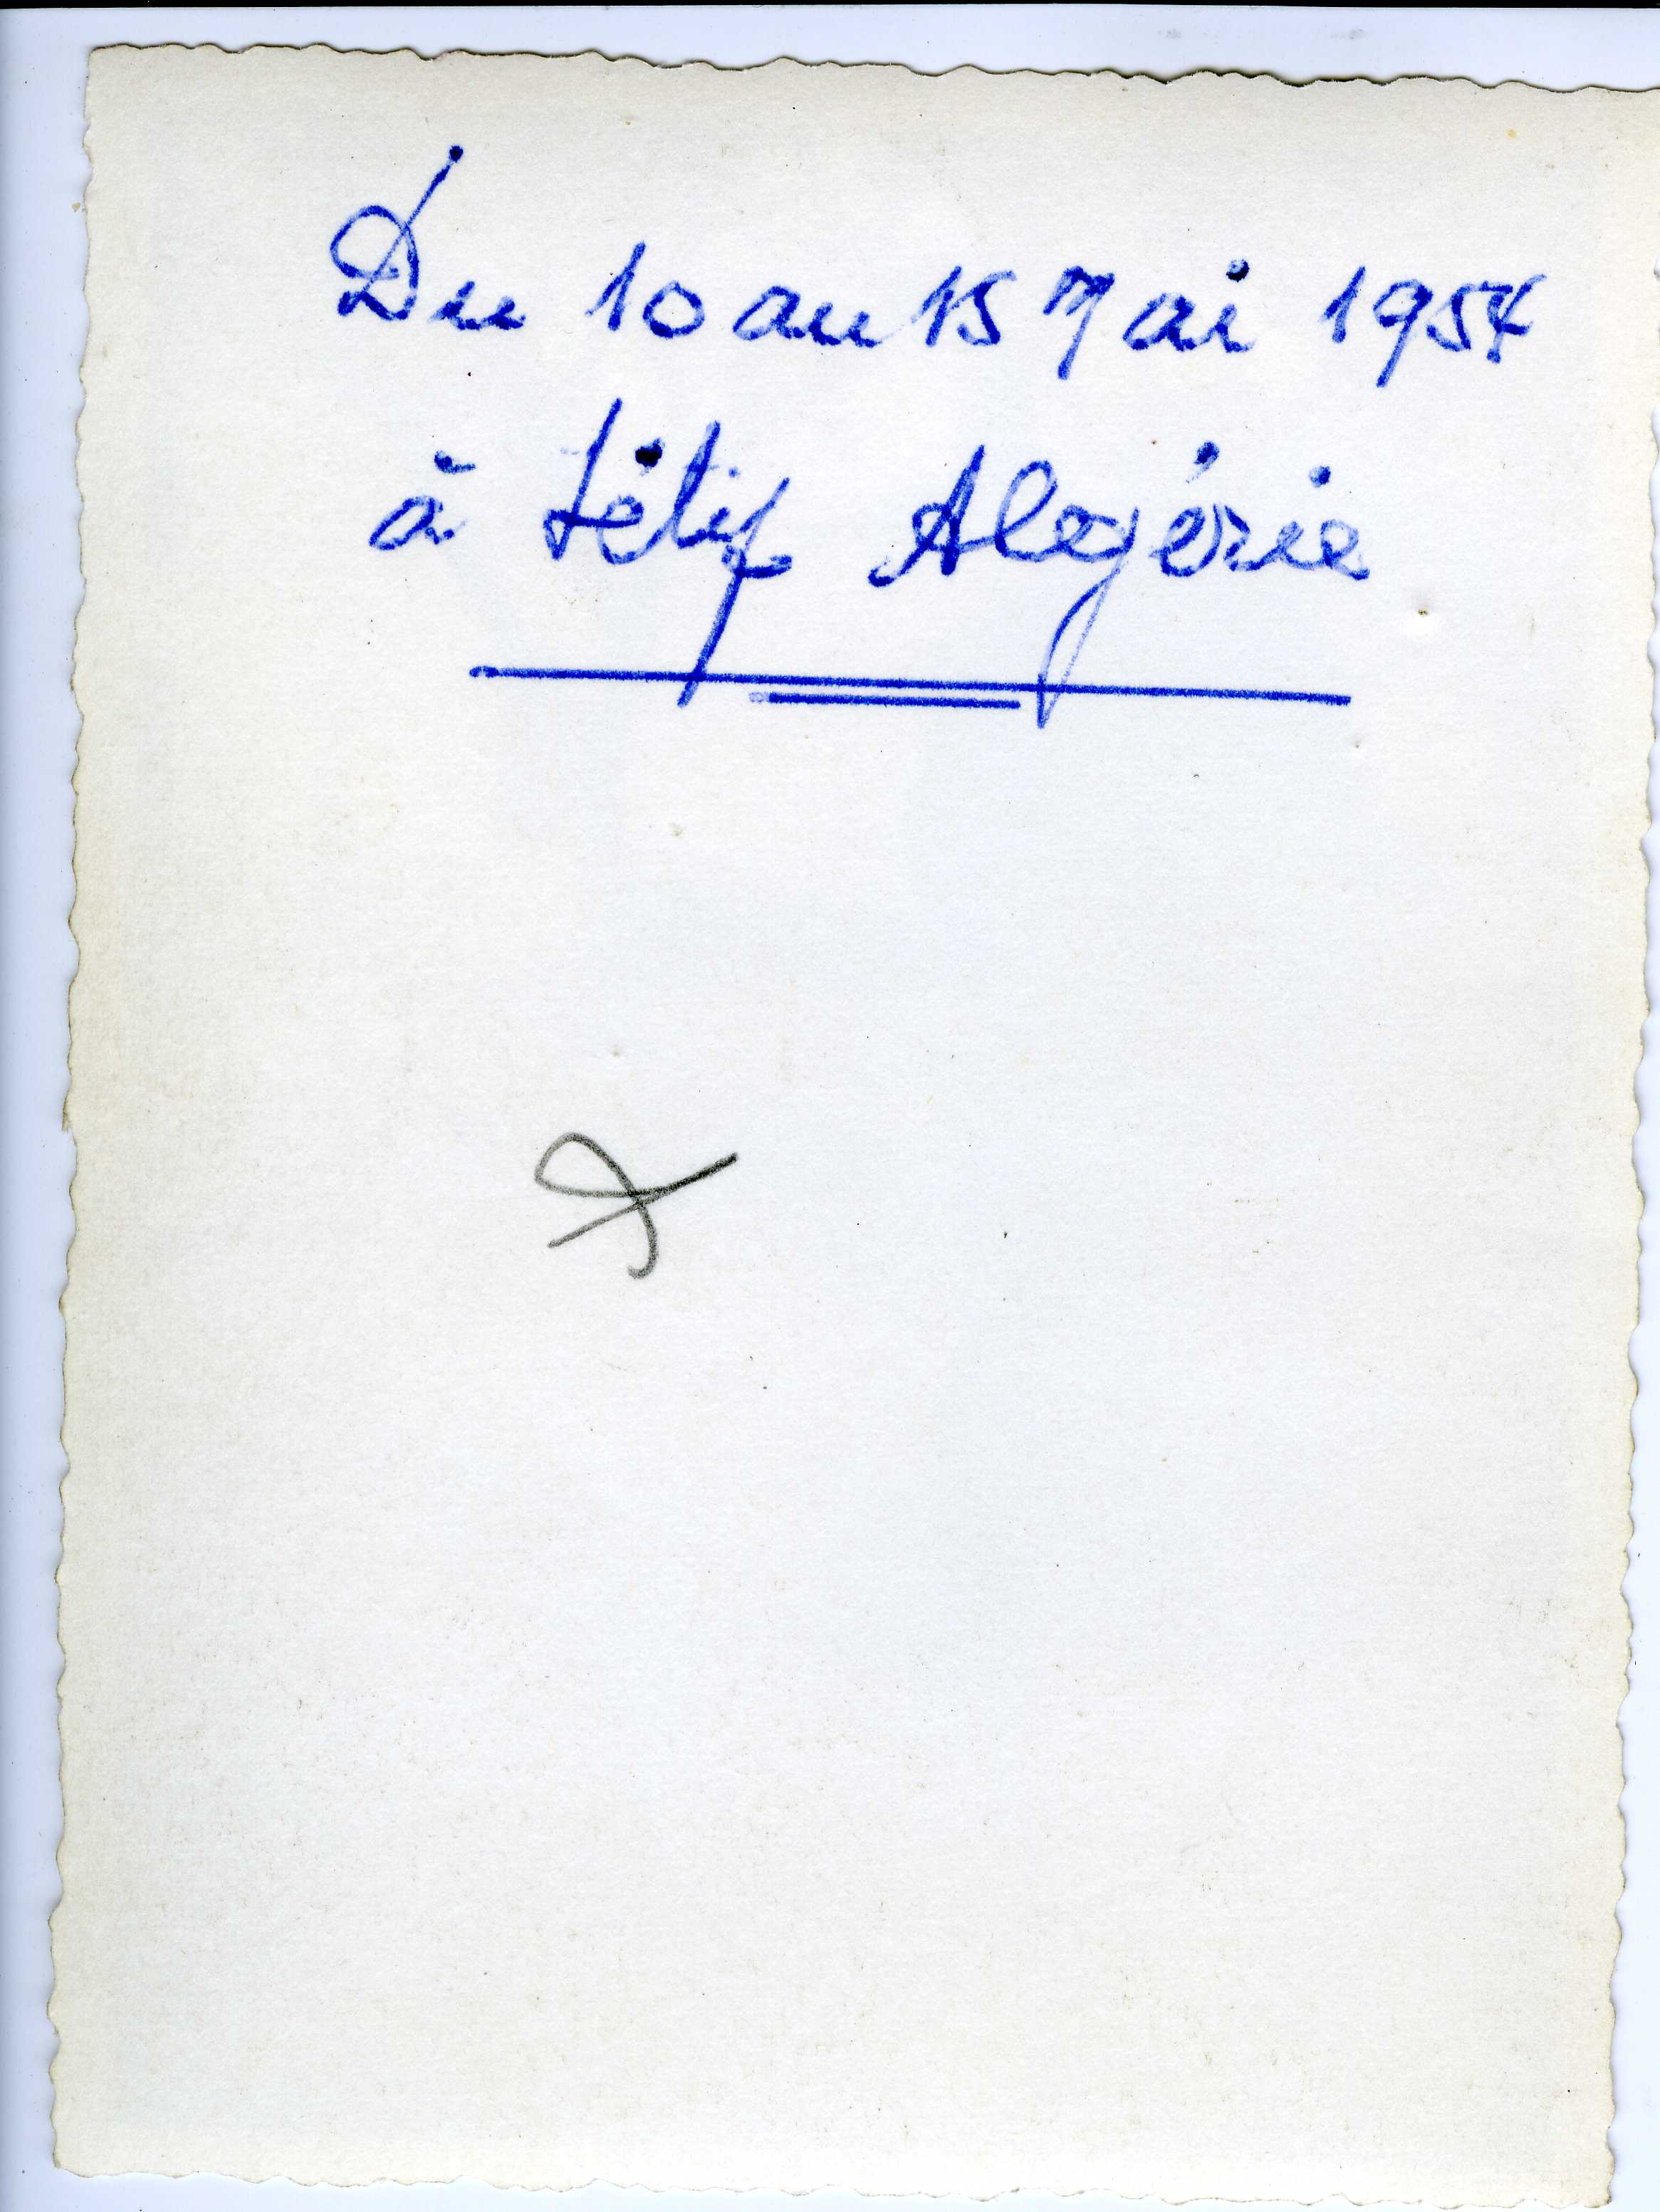 Du 10 au 15 Mai 1954
à Sétif Algérie